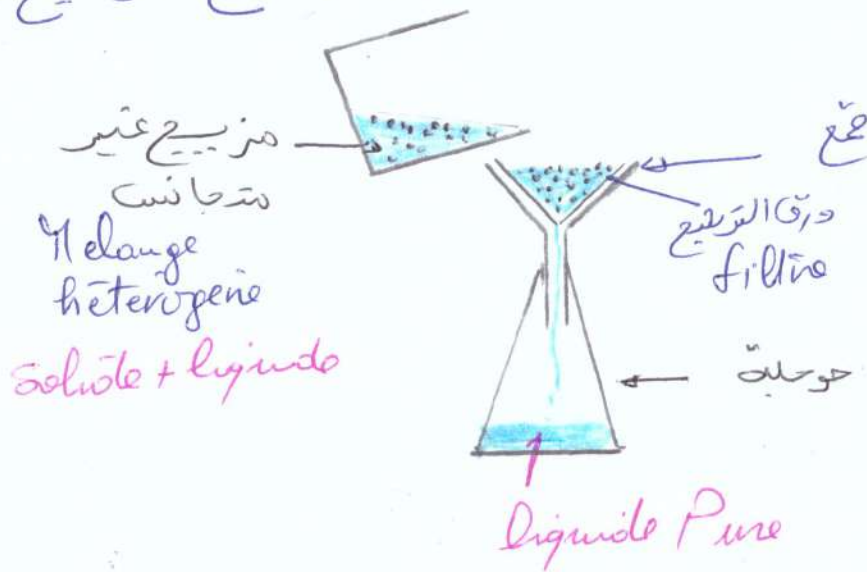 مزيج غير
متجانس
Melange
hétérogene
Solide + liquide
قمع
ورق الترشيح
filtre
حوجلة
liquide Pure